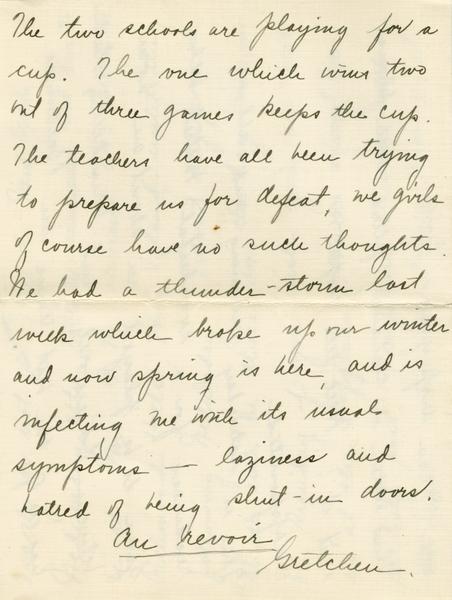 The two schools are playing for a
cup. The one which wins two
out of three games keeps the cup.
The teachers have all been trying
to prepare us for defeat, we girls
of course have no such thoughts.
We had a thunder-storm last
week which broke up our winter
and now spring is here, and is
infecting me with its usual
symptoms — laziness and
hatred of being shut-in doors.
Au revoir
Gretchen.